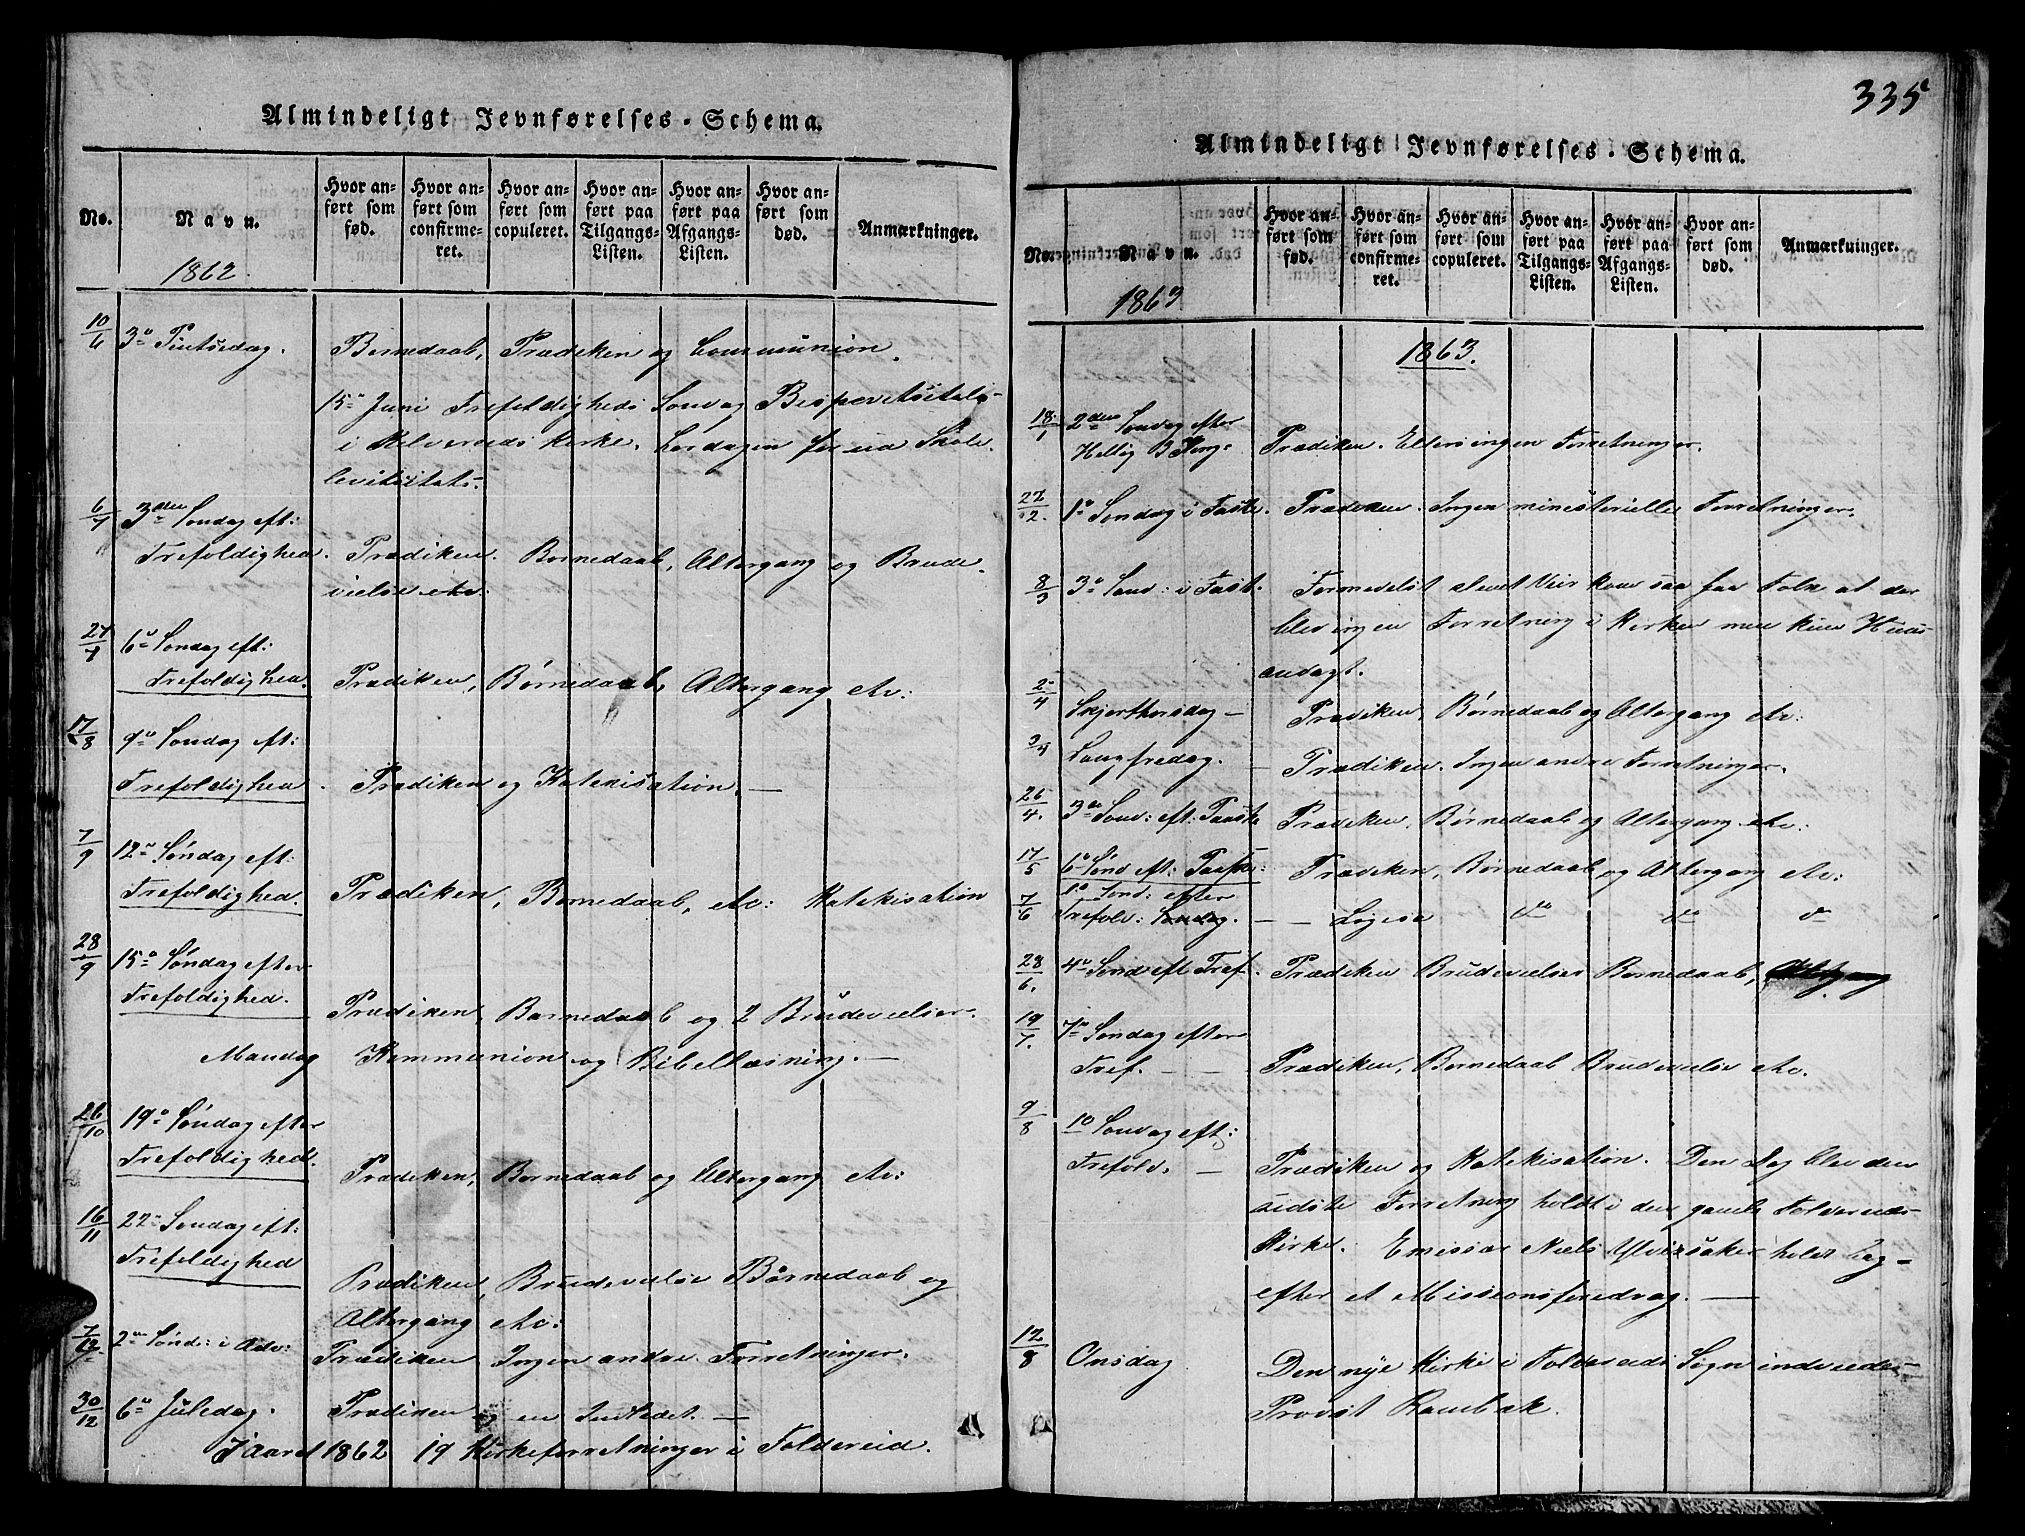 Almindeligt Jevnførelses-Schema.
No.
Navn.
Hvor anført som fød.
Hvor anført som confirmeret.
Hvor anført som copuleret.
Hvor anført paa Tilgangs-Listen.
Hvor anført paa Afgangs-Listen.
Hvor anført som død.
Anmærkninger.
1862.
10/6 3die Pintsedag. Bornedaab, Prædiken og Communion.
15de Juni Trefoldigheds Sondag Bispevisitats
i Kirke. Lørdagen forud Skole
visitats.
6/7 3den Søndag eft:
Trefoldighed. Prædiken. Bornedaab, Altergang og Brude-
vielse etc.
27/7 6te Søndag eft:
Trefoldighed. Prædiken, Børnedaab, Altergang etc:
17/8 9de Søndag eft:
Trefoldighed. Prædiken og Katekisation. —
7/9 12te Søndag eft:
Trefoldighed. Prædiken, Bornedaab, etc: Katekisation
28/9 15de Søndag efter
Trefoldighed. Prædiken, Barnedaab og 2 Brudevielser.
Mandag Kommunion og Bibellæsning. —
26/10 19de Søndag efter
Trefoldighed. Prædiken, Bornedaab og Altergang etc:
16/11 22de Søndag eft:
Trefoldighed Prædiken, Brudevielse Børnedaab og
Altergang etc:
7/12 2den Sønd: i Adv: Prædiken Ingen andre Forretninger.
30/12 6te Juledag. Prædiken —
I aaret 1862 19 Kirkeforretninger i Foldereid.
335
Almindeligt Jevnførelses-Schema.
No.
Navn.
Hvor anført som fød.
Hvor anført som confirmeret.
Hvor anført som copuleret.
Hvor anført paa Tilgangs-Listen.
Hvor anført paa Afgangs-Listen.
Hvor anført som død.
Anmærkninger.
1863
1863.
18/1 2den Søndag efter
Hellig 3 Kong: Prædiken. Ellers ingen Forretninger.
22/2. 1ste Søndag i Faste. Prædiken. Ingen ministerielle Forretninger.
8/3 3die Sønd: i Fast. Formedelst slemt Veir kom saa faa Folk at der
blev ingen Forretning i Kirken men kun Huus-
andagt.
2/4 Skjerthorsdag — Prædiken, Børnedaab og Altergang etc:
3/4 Langfredag. Prædiken. Ingen andre Forretninger.
26/4. 3die Sønd: eft: Paaske Prædiken, Børnedaab og Altergang etc:
17/5 6te Sønd eft: Paaske: Prædiken, Børnedaab og Altergang etc:
7/6 1ste Sønd: efter
Trefold: Søndag. — — Ligesaa do do do
28/6. 4de Sønd eft Tref. Prædiken Brudevielser Bornedaab, Altergang
19/7. 7de Søndag efter
Tref. — — Prædiken, Bornedaab Brudevielse etc.
9/8 10 Søndag eft:
Trefold. — Prædiken og Katekisation. Den Dag blev den
sidste Forretning holdt i den gamle Foldereids
Kirke. Emissær Niels Ylvisaker holdt Dag-
efter et Missionsforedrag. —
12/8 Onsdag Den nye Kirke i Foldereids Sogn indviedes
Provst Rambæk.